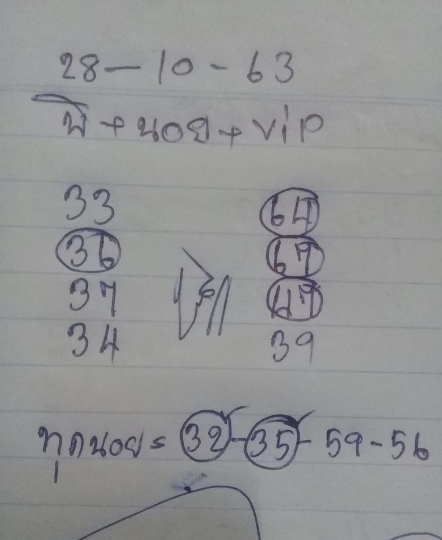 28-10-63
พี+นอย+vip
33 64
36 67
37 47
34 39
ทุดนอย= 32-35-59-56